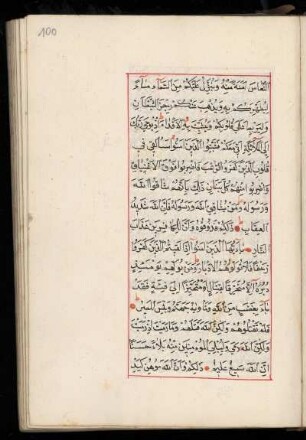 100
النعاس امنة منه وينزل عليكم من السماء ماء
ليطهركم به ويذهب عنكم رجز الشيطان
وليربط على قلوبكم ويثبت به الاقدام اذ يوحي ربك
الى الملائكة اني معكم فثبتوا الذين امنوا سالقي في
قلوب الذين كفروا الرعب فاضربوا فوق الاعناق
واضربوا منهم كل بنان ذلك بانهم شاقوا الله
ورسوله ومن يشاقق الله ورسوله فان الله شديد
العقاب ذلكم فذوقوه وان للكافرين عذاب
النار يا ايها الذين امنوا اذا لقيتم الذين كفروا
زحفا فلا تولوهم الادبار ومن يولهم يومئذ
دبره الا متحرفا لقتال او متحيزا الى فئة فقد
باء بغضب من الله وماويه جهنم وبئس المصير
فلم تقتلوهم ولكن الله قتلهم وما رميت اذ رميت
ولكن الله رمى وليبلي المؤمنين منه بلاء حسنا
ان الله سميع عليم ذلكم وان الله موهن كيد